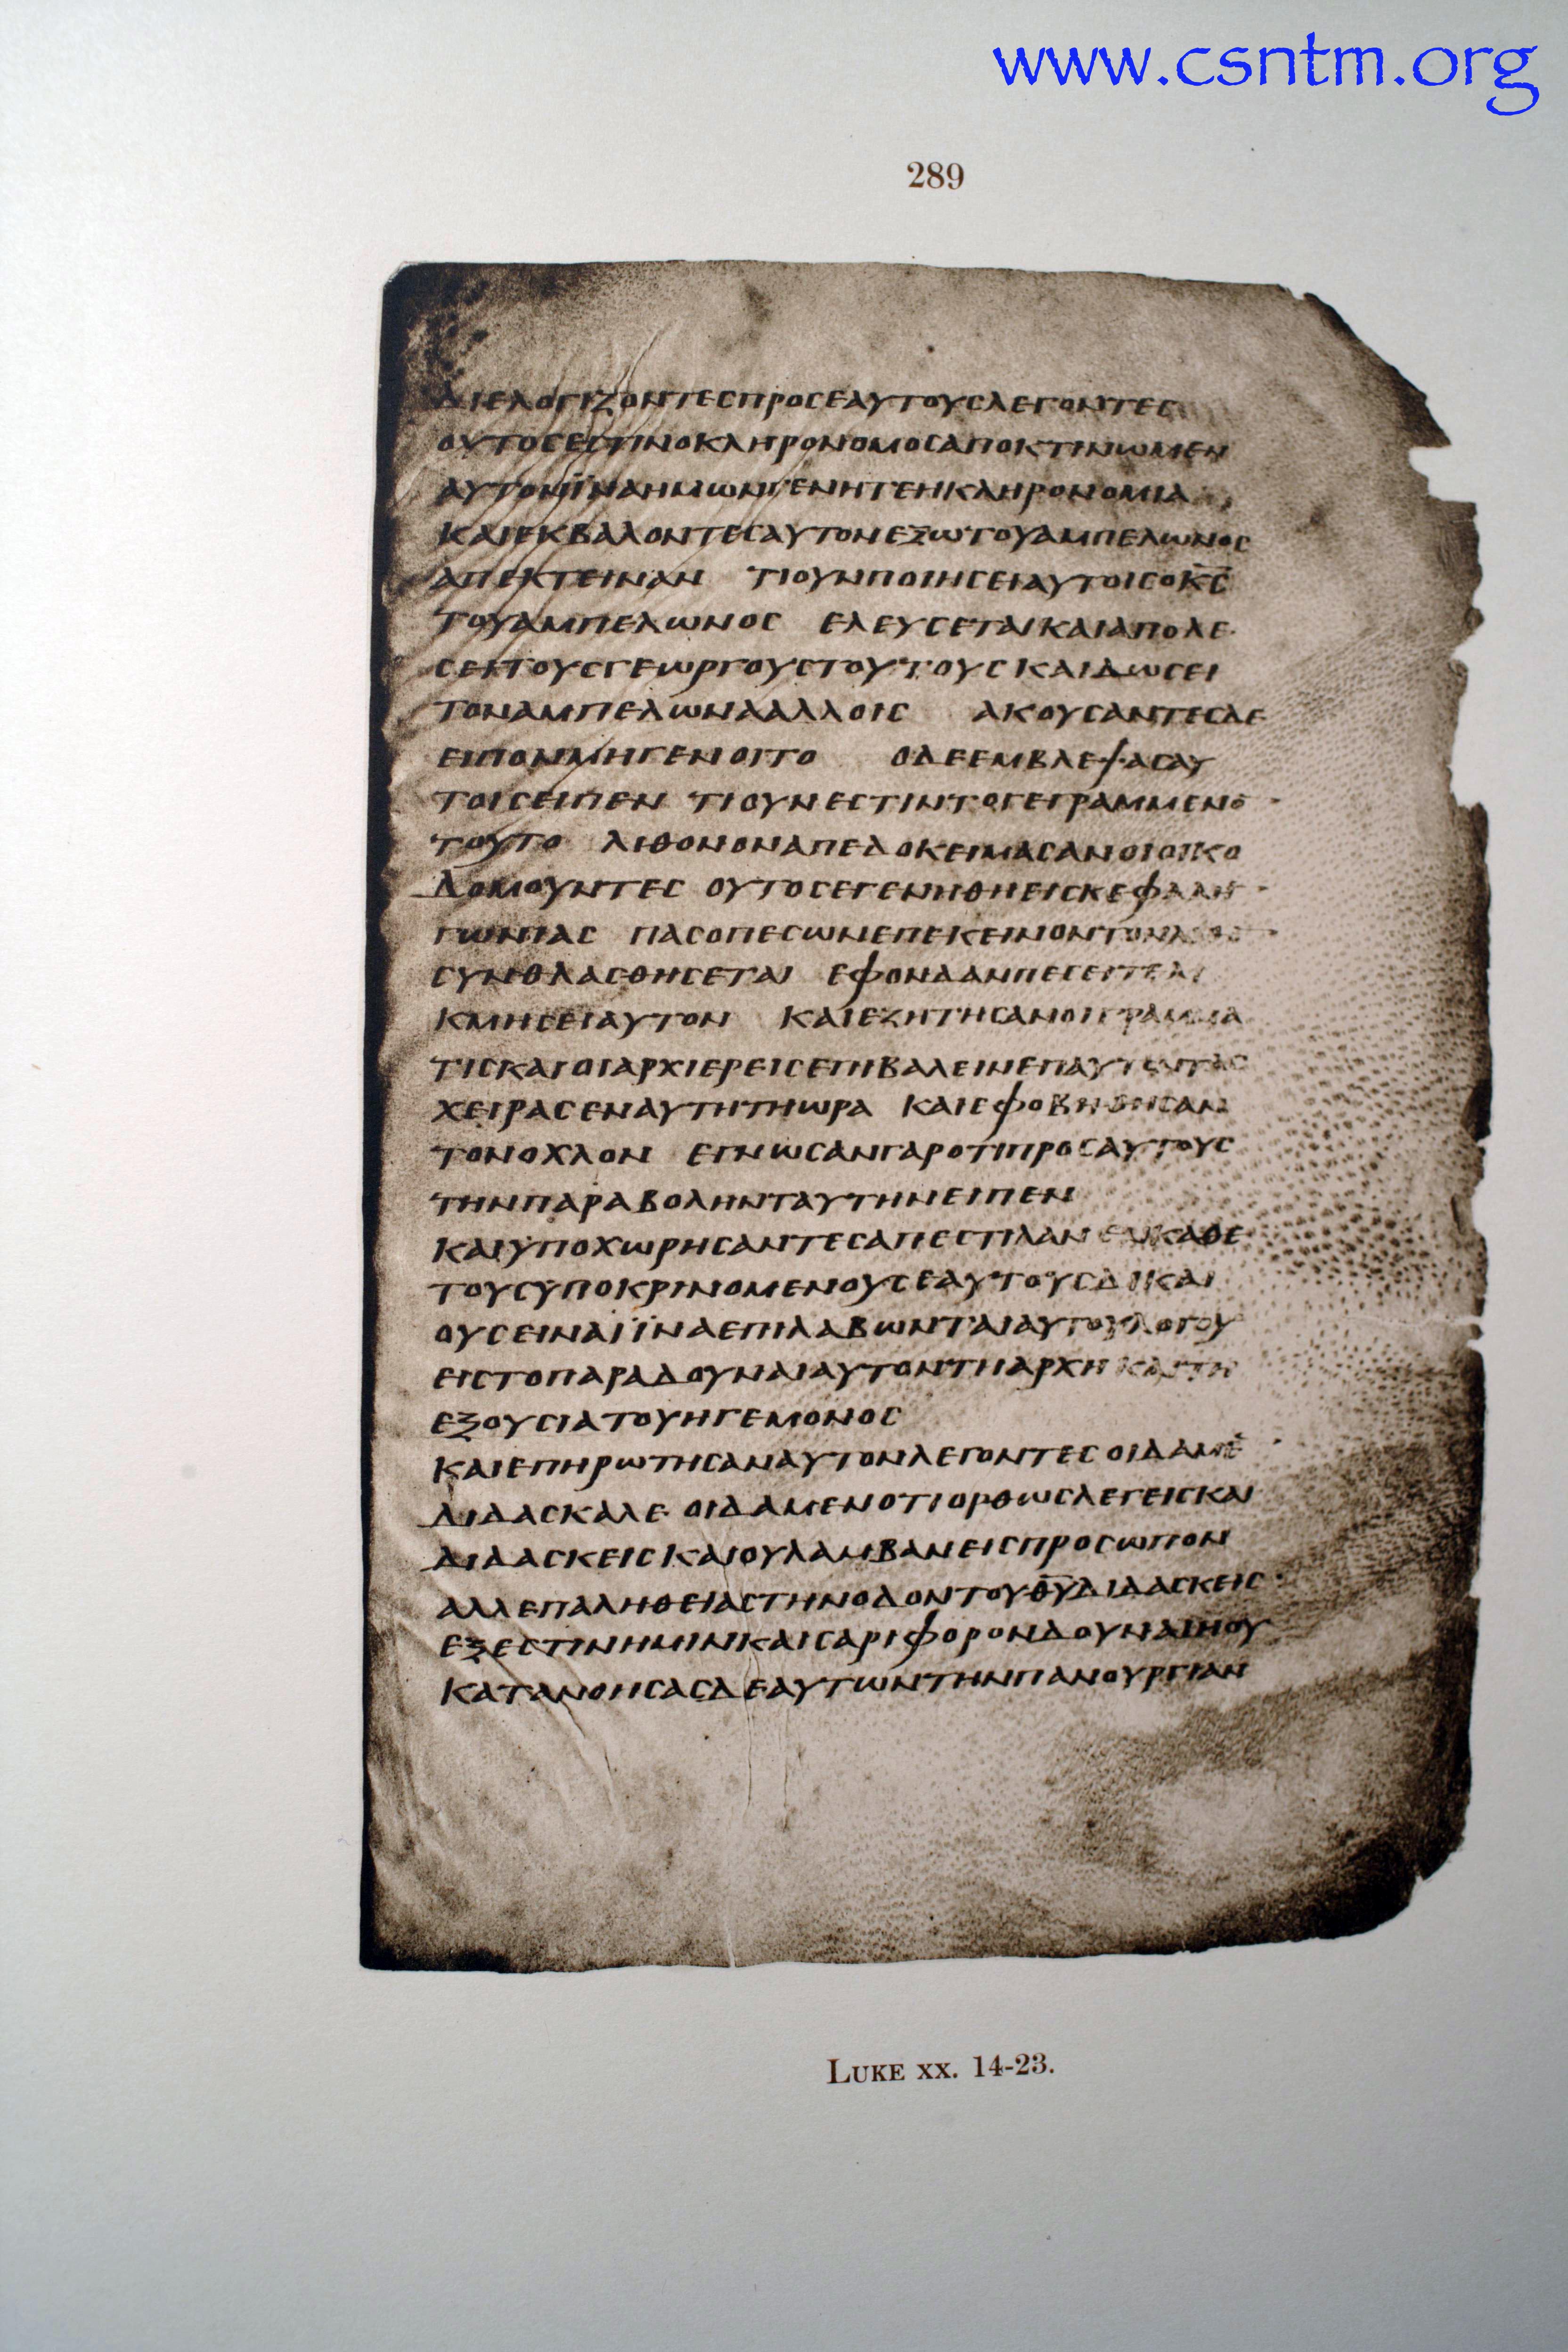 www.csntm.org
289
ΔΙΕΛΟΓΙΖΟΝΤΕCΠΡΟCΕΑΥΤΟΥCΛΕΓΟΝΤΕC
ΟΥΤΟCΕCΤΙΝΟΚΛΗΡΟΝΟΜΟCΑΠΟΚΤΙΝΩΜΕΝ
ΑΥΤΟΝΪΝΑΗΜΩΝΓΕΝΗΤΕΗΚΛΗΡΟΝΟΜΙΑ
ΚΑΙΕΚΒΑΛΟΝΤΕCΑΥΤΟΝΕΞΩΤΟΥΑΜΠΕΛΩΝΟC
ΑΠΕΚΤΕΙΝΑΝ ΤΙΟΥΝΠΟΙΗCΕΙΑΥΤΟΙCΟΚ̅C̅
ΤΟΥΑΜΠΕΛΩΝΟC ΕΛΕΥCΕΤΑΙΚΑΙΑΠΟΛΕ
CΕΙΤΟΥCΓΕΩΡΓΟΥCΤΟΥΤΟΥC ΚΑΙΔΩCΕΙ
ΤΟΝΑΜΠΕΛΩΝΑΑΛΛΟΙC ΑΚΟΥCΑΝΤΕCΔΕ
ΕΙΠΟΝΜΗΓΕΝΟΙΤΟ ΟΔΕΕΜΒΛΕΨΑCΑΥ
ΤΟΙCΕΙΠΕΝ ΤΙΟΥΝΕCΤΙΝΤΟΓΕΓΡΑΜΜΕΝΟ
ΤΟΥΤΟ ΛΙΘΟΝΟΝΑΠΕΔΟΚΕΙΜΑCΑΝΟΙΟΙΚΟ
ΔΟΜΟΥΝΤΕC ΟΥΤΟCΕΓΕΝΗΘΗΕΙCΚΕΦΑΛΗ
ΓΩΝΙΑC ΠΑCΟΠΕCΩΝΕΠΕΚΕΙΝΟΝΤΟΝ
CΥΝΘΛΑCΘΗCΕΤΑΙ ΕΦΟΝΔΑΝΠΕCΕΙΤΕΛΙ
ΚΜΗCΕΙΑΥΤΟΝ ΚΑΙΕΖΗΤΗCΑΝΟΙΓΡΑΜΜΑ
ΤΙCΚΑΙΟΙΑΡΧΙΕΡΕΙCΕΠΙΒΑΛΕΙΝΕΠΑΥΤΟΝΤΑC
ΧΕΙΡΑCΕΝΑΥΤΗΤΗΩΡΑ ΚΑΙΕΦΟΒΗΘΗCΑΝ
ΤΟΝΟΧΛΟΝ ΕΓΝΩCΑΝΓΑΡΟΤΙΠΡΟCΑΥΤΟΥC
ΤΗΝΠΑΡΑΒΟΛΗΝΤΑΥΤΗΝΕΙΠΕΝ
ΚΑΙΫΠΟΧΩΡΗCΑΝΤΕCΑΠΕCΤΙΛΑΝ ΕΝΚΑΘΕ
ΤΟΥCΫΠΟΚΡΙΝΟΜΕΝΟΥCΕΑΥΤΟΥCΔΙΚΑΙ
ΟΥCΕΙΝΑΙΪΝΑΕΠΙΛΑΒΩΝΤΑΙΑΥΤΟΥΛΟΓΟΥ
ΕΙCΤΟΠΑΡΑΔΟΥΝΑΙΑΥΤΟΝΤΗΑΡΧΗΚΑΙΤΗ
ΕΞΟΥCΙΑΤΟΥΗΓΕΜΟΝΟC
ΚΑΙΕΠΗΡΩΤΗCΑΝΑΥΤΟΝΛΕΓΟΝΤΕC ΟΙΔΑΜΕ̅
ΔΙΔΑCΚΑΛΕ ΟΙΔΑΜΕΝΟΤΙΟΡΘΩCΛΕΓΕΙCΚΑΙ
ΔΙΔΑCΚΕΙCΚΑΙΟΥΛΑΜΒΑΝΕΙCΠΡΟCΩΠΟΝ
ΑΛΛΕΠΑΛΗΘΕΙΑCΤΗΝΟΔΟΝΤΟΥΘ̅Υ̅ΔΙΔΑCΚΕΙC
ΕΞΕCΤΙΝΗΜΙΝΚΑΙCΑΡΙΦΟΡΟΝΔΟΥΝΑΙΗΟΥ
ΚΑΤΑΝΟΗCΑCΔΕΑΥΤΩΝΤΗΝΠΑΝΟΥΡΓΙΑΝ
LUKE XX. 14-23.